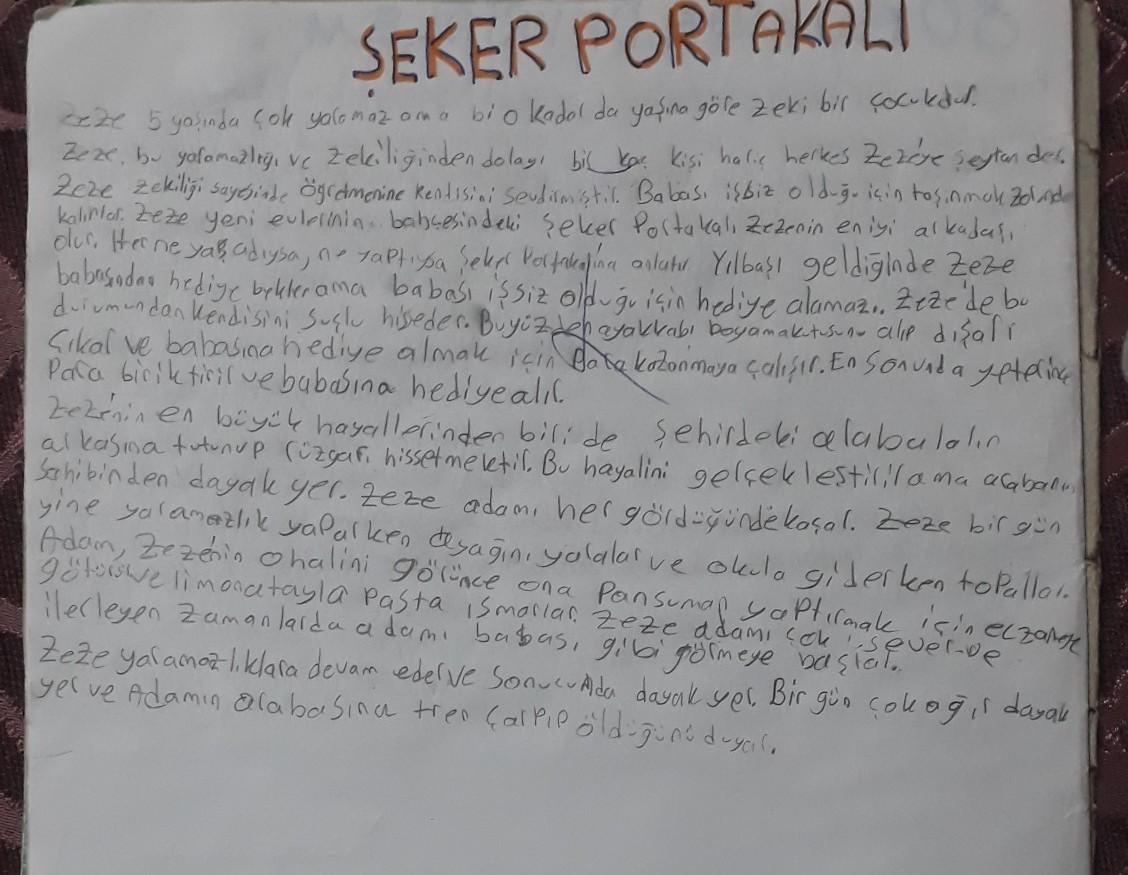 ŞEKER PORTAKALI
Zeze 5 yaşında çok yaramaz ama bi o kadar da yaşına göre zeki bir çocukdur.
Zeze, bu yaramazlığı ve zekiliğinden dolayı bir kaç kişi hariç herkes Zeze'ye şeytan der.
Zeze zekiliği sayesinde öğretmenine kendisini sevdirmiştir. Babası işsiz olduğu için taşınmak zorunda
kalırlar. Zeze yeni evlerinin bahçesindeki Şeker Portakalı Zezenin en iyi arkadaşı
olur. Her ne yaşadıysa, ne yaptıysa Şeker Portakalına anlatır. Yılbaşı geldiğinde Zeze
babasından hediye bekler ama babası işsiz olduğu için hediye alamaz.. Zeze'de bu
durumundan kendisini suçlu hisseder. Bu yüzden ayakkabı boyama kutusunu alıp dışarı
Çıkar ve babasına hediye almak için Para kazanmaya çalışır. En Sonunda yeterince
Para biriktirir ve babasına hediye alır.
Zeze'nin en büyük hayallerinden biri de şehirdeki arabaların
arkasına tutunup rüzgarı hissetmektir. Bu hayalini gerçekleştirir ama arabanın
Sahibinden dayak yer. Zeze adamı her gördüğünde kaçar. Zeze bir gün
yine yaramazlık yaparken ayağını yaralar ve okula giderken topallar.
Adam, Zeze'nin o halini görünce ona Pansuman yaptırmak için eczaneye
götürür ve limonatayla pasta ısmarlar. Zeze adamı çok sever ve
ilerleyen zamanlarda adamı babası gibi görmeye başlar.
Zeze yaramazlıklara devam eder ve sonucunda dayak yer. Bir gün çok ağır dayak
yer ve Adamın arabasına tren çarpıp öldüğünü duyar.